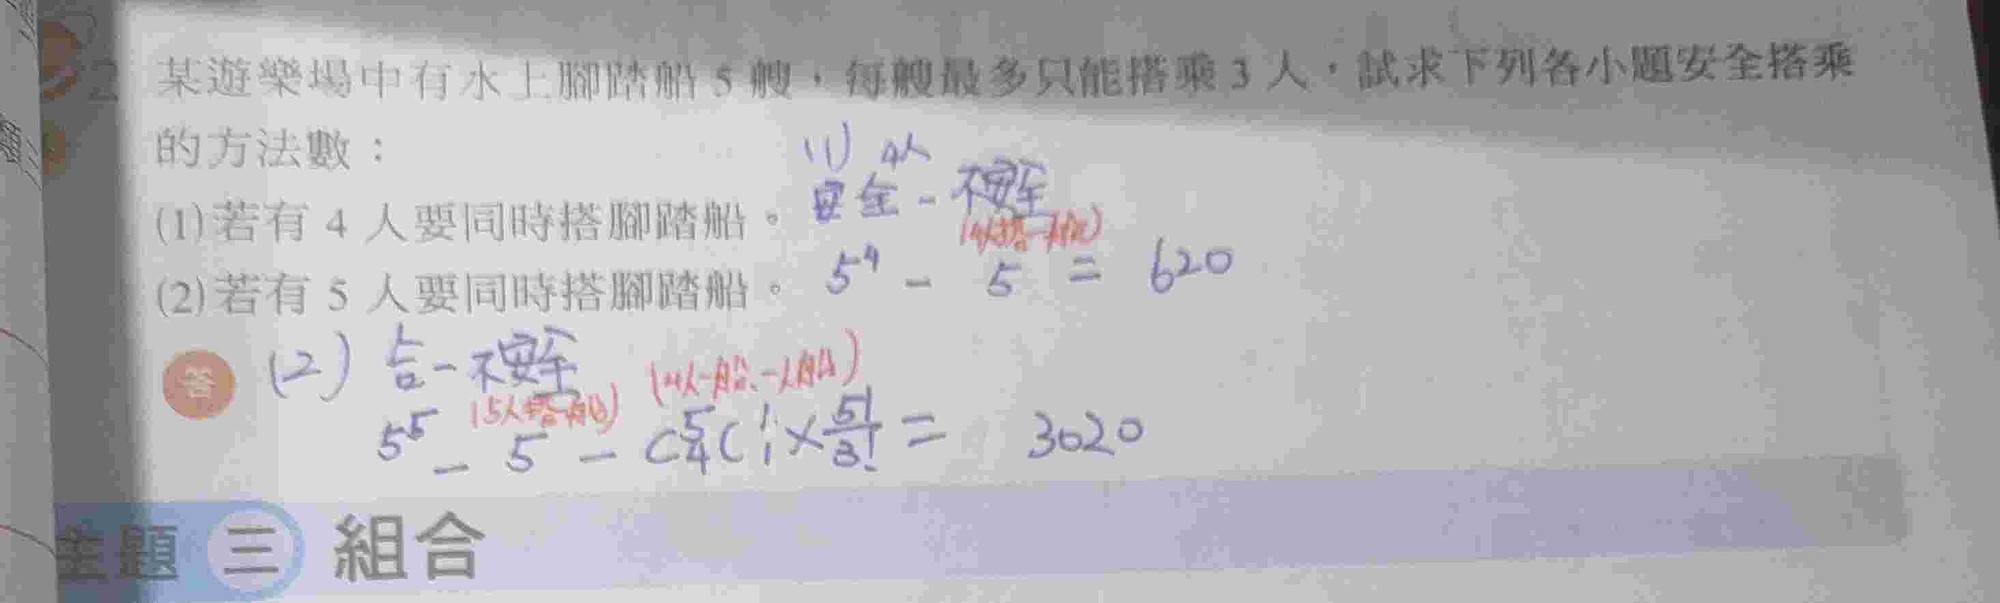 2 某遊樂場中有水上腳踏船 5 艘，每艘最多只能搭乘 3 人，試求下列各小題安全搭乘
的方法數：
(1)若有 4 人要同時搭腳踏船。
(2)若有 5 人要同時搭腳踏船。
(1) 4人
安全 - 不安全
(4人搭一船)
5⁴ - 5 = 620
答
(2) 全 - 不安全
(5人搭一船) (4人一船、一人船)
5⁵ - 5 - C⁵₄C¹₁×5!/3! = 3020
主題 三 組合